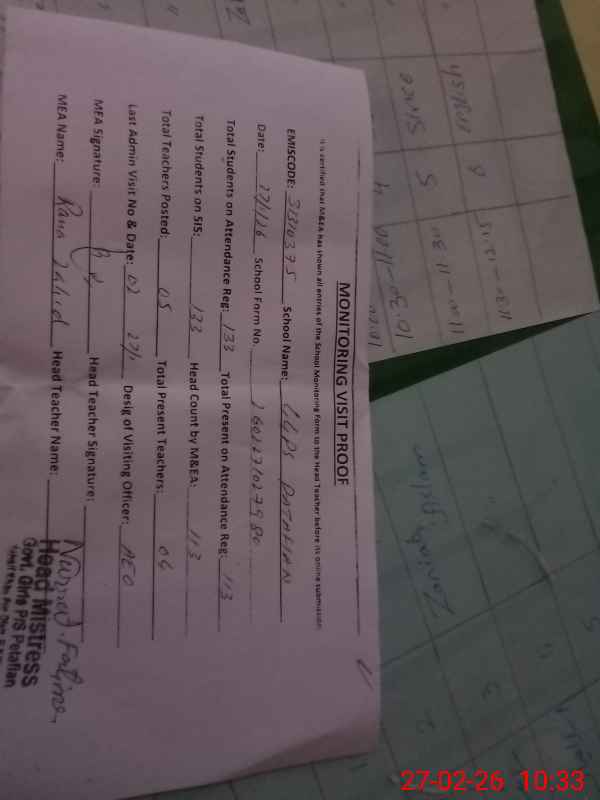 MONITORING VISIT PROOF
It is certified that M&EA has shown all entries of the School Monitoring Form to the Head Teacher before its online submission
EMISCODE: 31310375 School Name: GGPS PATAFIAN
Date: 27/2/26 School Form No. 260227027980
Total Students on Attendance Reg: 133 Total Present on Attendance Reg: 113
Total Students on SIS: 133 Head Count by M&EA: 113
Total Teachers Posted: 05 Total Present Teachers: 04
Last Admin Visit No & Date: 02 Desig of Visiting Officer: AEO
MEA Signature: Head Teacher Signature:
MEA Name: Rana Zahid Head Teacher Name:
Head Mistress
Govt. Girls P/S Petafian
English
Since
8
5
4
11:30-12:15
10:30-11:00
27-02-26 10:33